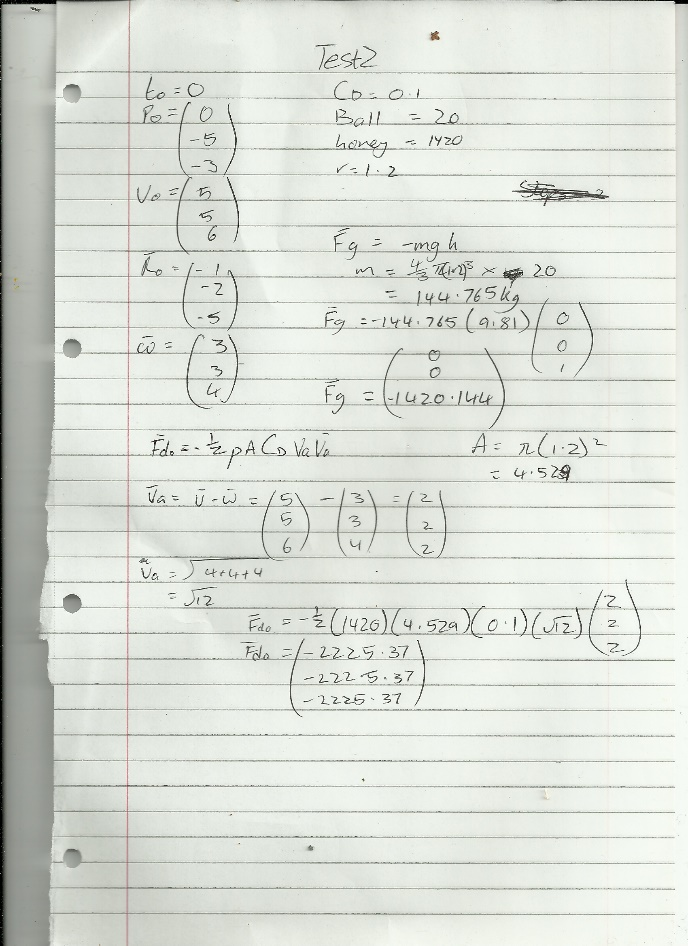 Test2
t₀ = 0
P₀ = ( 0
-5
-3 )
V₀ = ( 5
5
6 )
R̄₀ = ( -1
-2
-5 )
ω̄ = ( 3
3
4 )
CD = 0.1
Ball = 20
honey = 1420
r = 1.2
F̄g = -mgh
m = 4/3 π(1.2)³ × 20
= 144.765kg
F̄g = -144.765 (9.81) ( 0
0
1 )
F̄g = ( 0
0
-1420.144 )
F̄d₀ = -½ ρ A CD Va V̄a
A = π(1.2)²
= 4.529
V̄a = v̄ - w̄ = ( 5 5 6 ) - ( 3 3 4 ) = ( 2 2 2 )
Va = √4+4+4
= √12
F̄d₀ = -½ (1420)(4.529)(0.1)(√12) ( 2 2 2 )
F̄d₀ = ( -2225.37
-2225.37
-2225.37 )